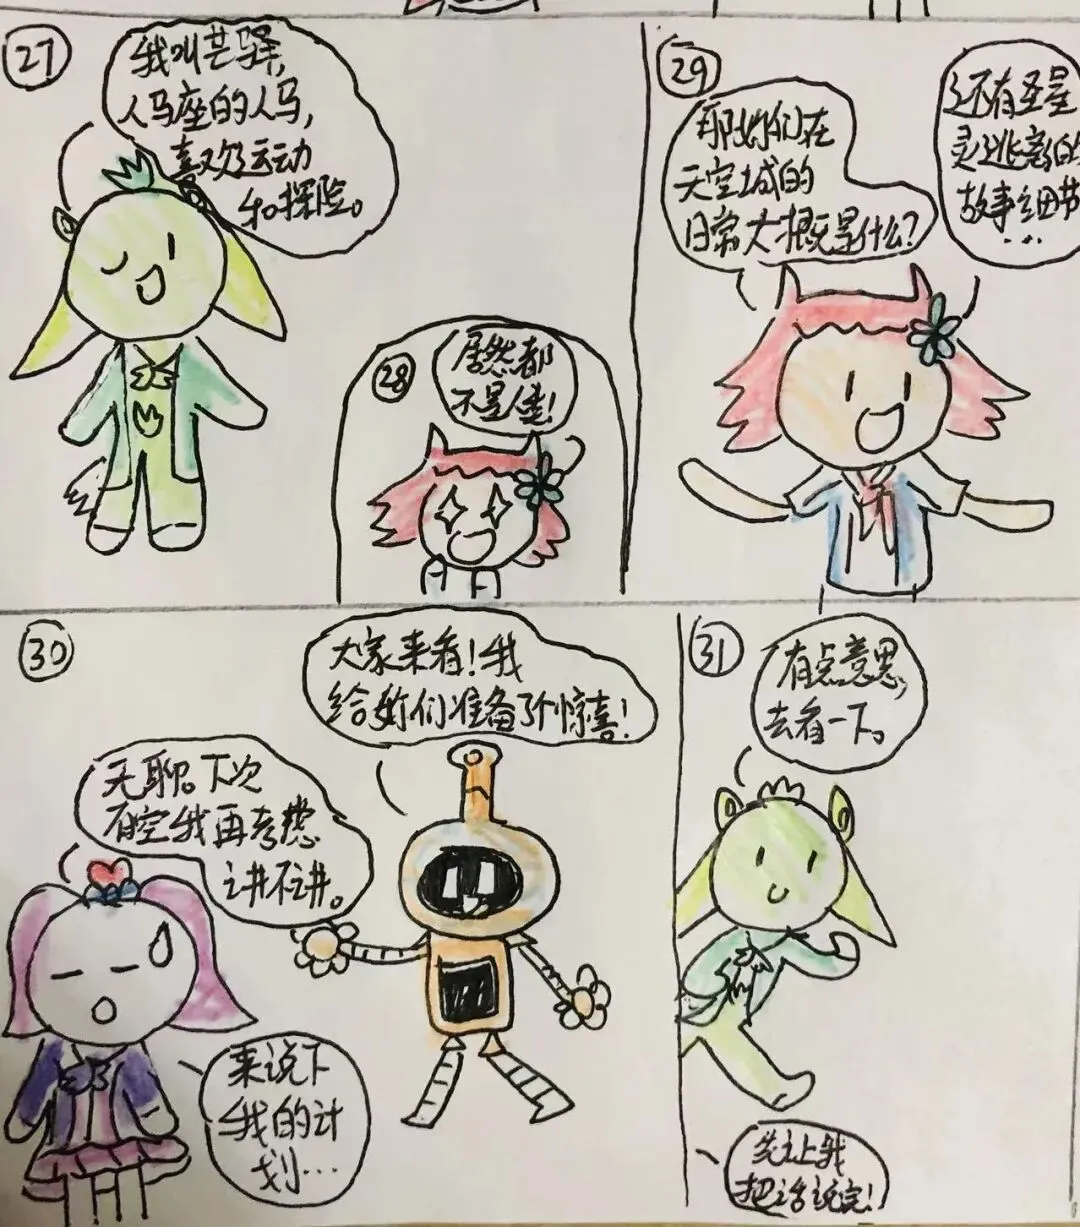 27
我叫芒驿,
人马座的人马,
喜欢运动
和探险。
28
居然都
不是人!
29
那她们在
天空城的
日常大概是什么?
还有圣星
灵逃离的
故事细节
...
30
大家来看!我
给她们准备了个惊喜!
无聊。下次
有空我再考虑
讲不讲。
来说下
我的计
划...
31
有点意思,
去看一下。
先让我
把话说完!